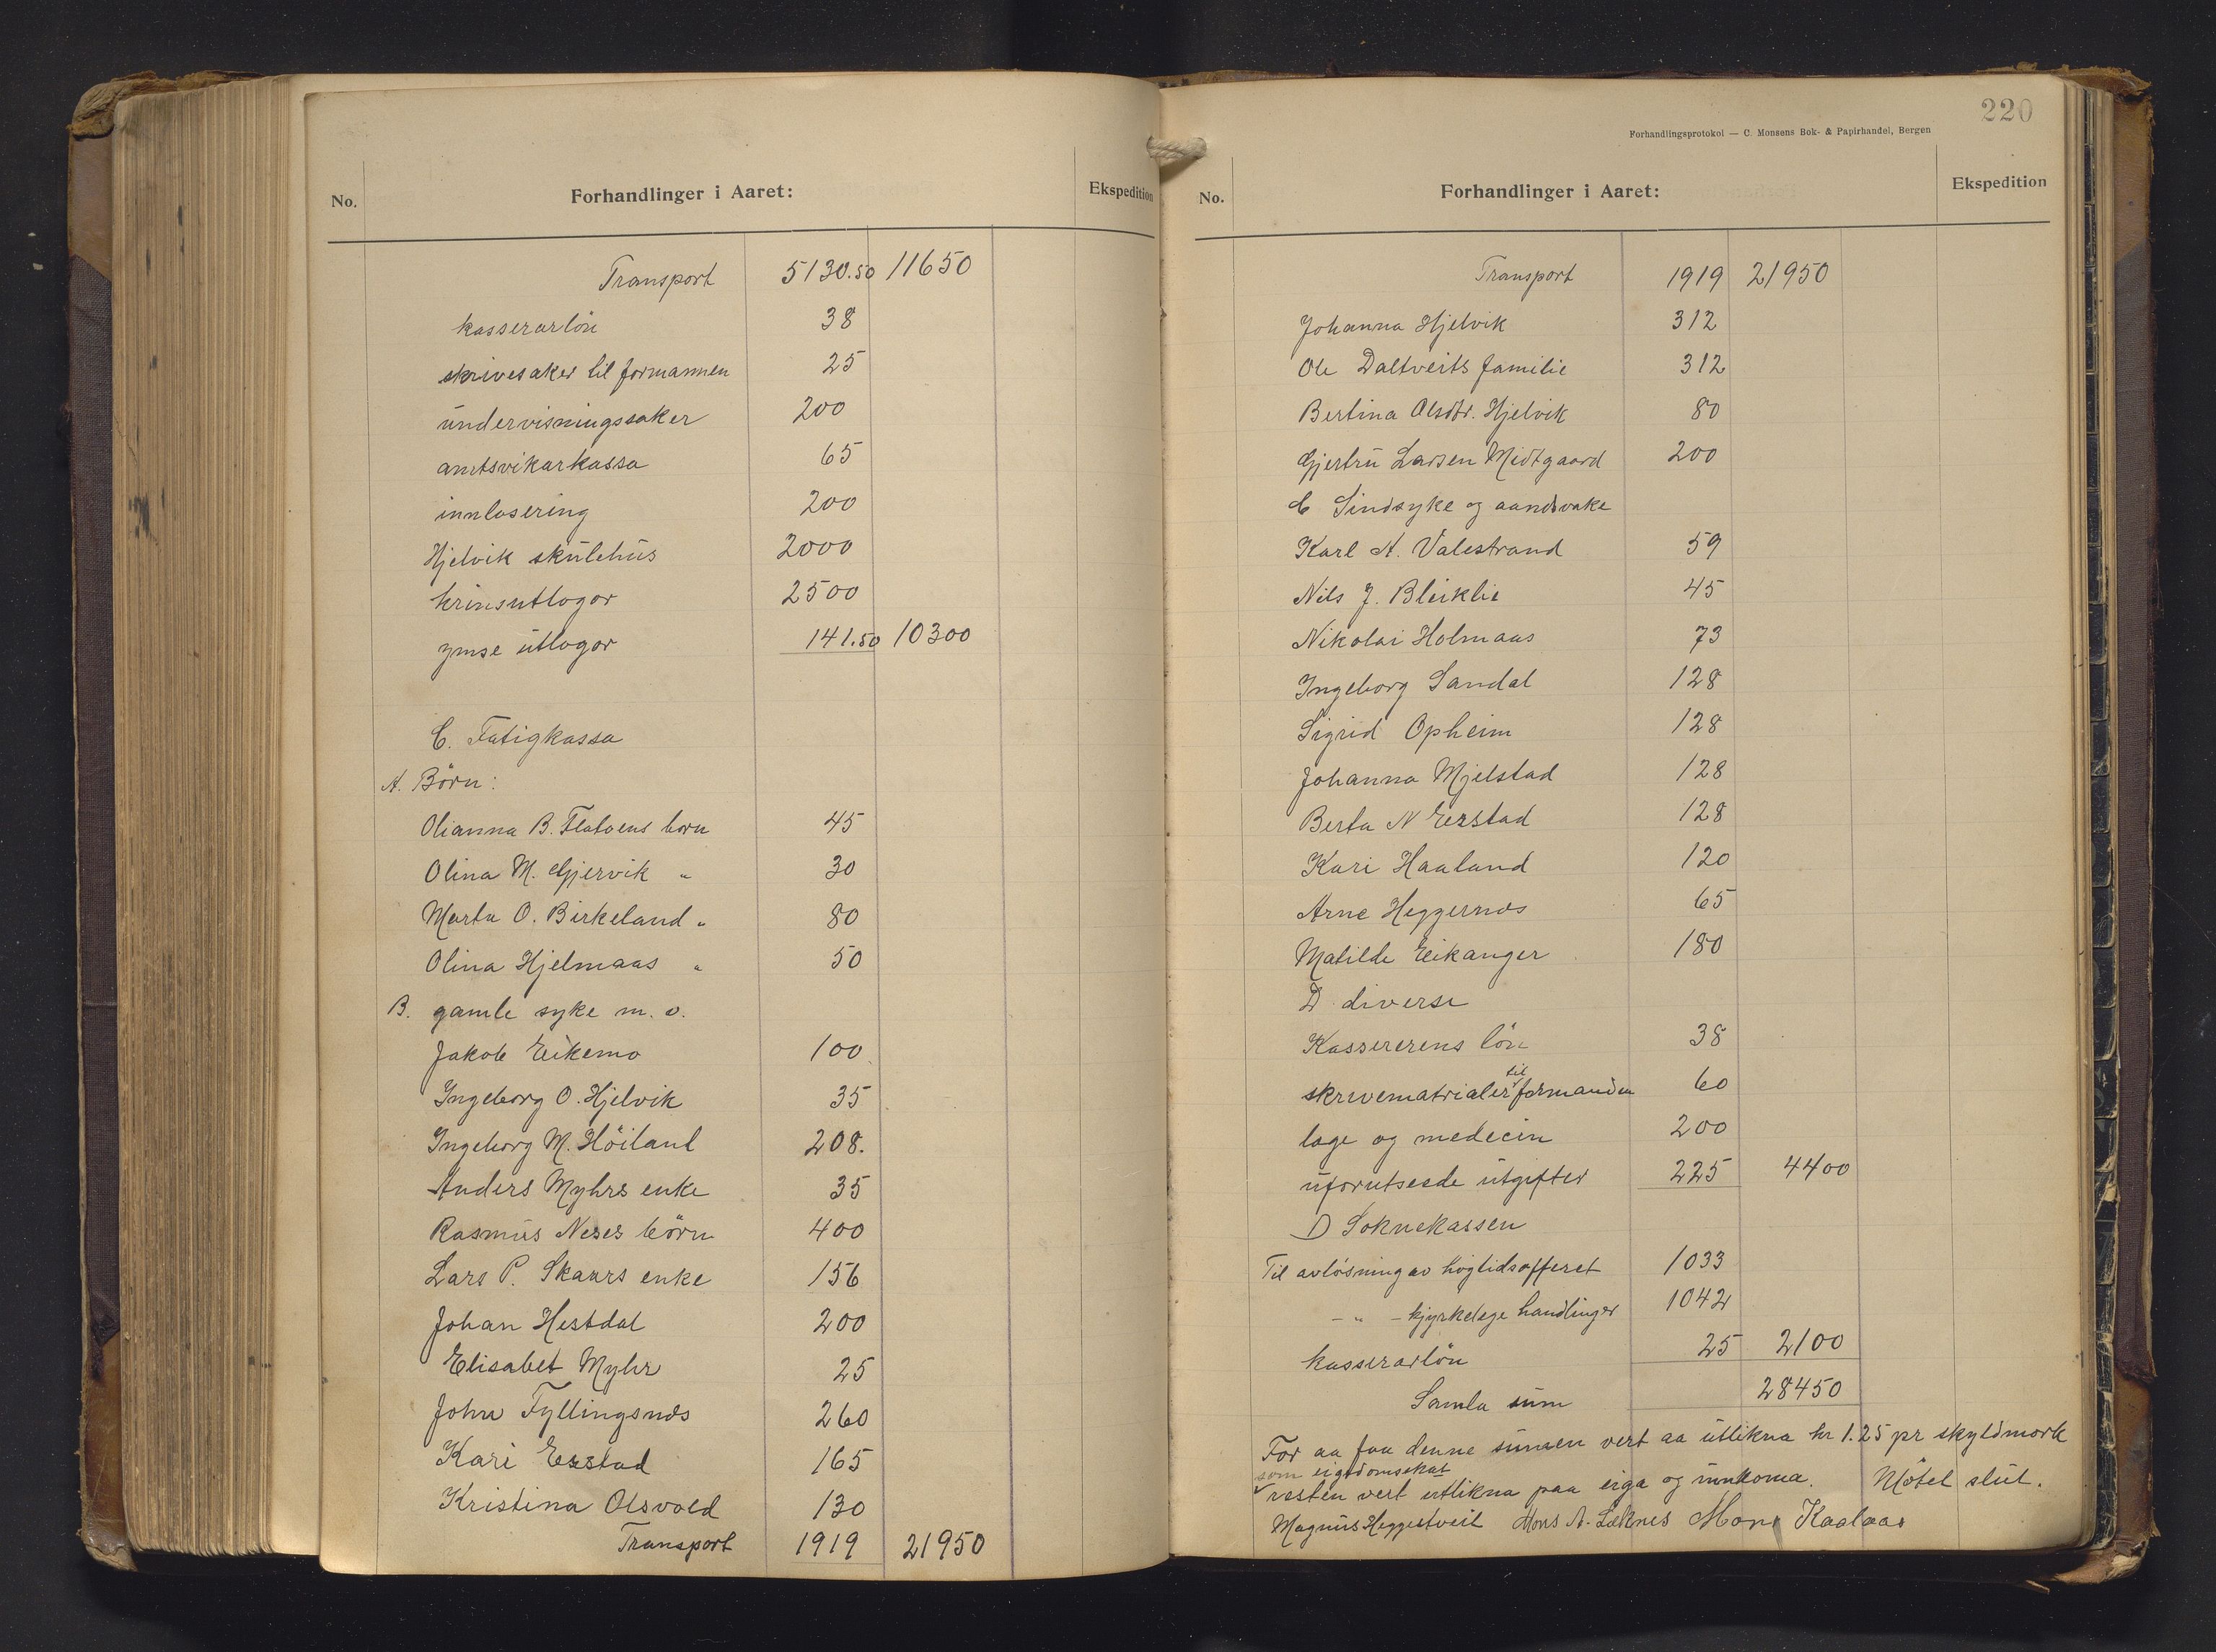 No.
Forhandlinger i Aaret:
Ekspedition
Transport 5130.50 11650
kasserarløn 38
skrivesaker til formannen 25
undervisningssaker 200
amtsvikarkassa 65
innlosering 200
Hjelvik skulehus 2000
krinsutlogor 2500
ymse utlogor 141.50 10300
C. Fatigkassa
A. Börn:
Olianna B. Flatøens born 45
Olina M. Gjervik " 30
Marta O. Birkeland " 80
Olina Hjelmaas " 50
B. gamle syke m. v.
Jakob Eikemo 100
Ingeborg O. Hjelvik 35
Ingeborg M. Höiland 208.
Anders Myhrs enke 35
Rasmus Neses börn 400
Lars P. Skaurs enke 156
Johan Hestdal 200
Elisabet Myhr 25
John Fyllingsnæs 260
Kari Erstad 165
Kristina Olsvold 130
Transport 1919 21950
220
Forhandlingsprotokol — C. Monsens Bok- & Papirhandel, Bergen
No.
Forhandlinger i Aaret:
Ekspedition
Transport 1919 21950
Johanna Hjelvik 312
Ole Daltveits familie 312
Bertina Olsdtr. Hjelvik 80
Gjertru Larsen Midtgaard 200
C Sindsyke og aandsvake
Karl A. Valestrand 59
Nils J. Bleiklie 45
Nikolai Holmaas 73
Ingeborg Sandal 128
Sigrid Opheim 128
Johanna Mjelstad 128
Berta N Erstad 128
Kari Haaland 120
Arne Heggernæs 65
Matilde Eikanger 180
D diverse
Kassererens lön 38
skrivematrialer til formanden 60
læge og medecin 200
uforutseede utgifter 225 4400
D Soknekassen
Til avlösning av högtidsofferet 1033
- " - kjyrkelege handlinger 1042
kasserarlön 25 2100
Samla sum 28450
For aa faa denne summen vert aa utlikna kr 1.25 pr skyldmork
som eigedomsskat
resten vert utlikna paa eiga og innkoma. Mötet slut.
Magnus Heggestveit Mons A. Leknes Mons Kaalaas